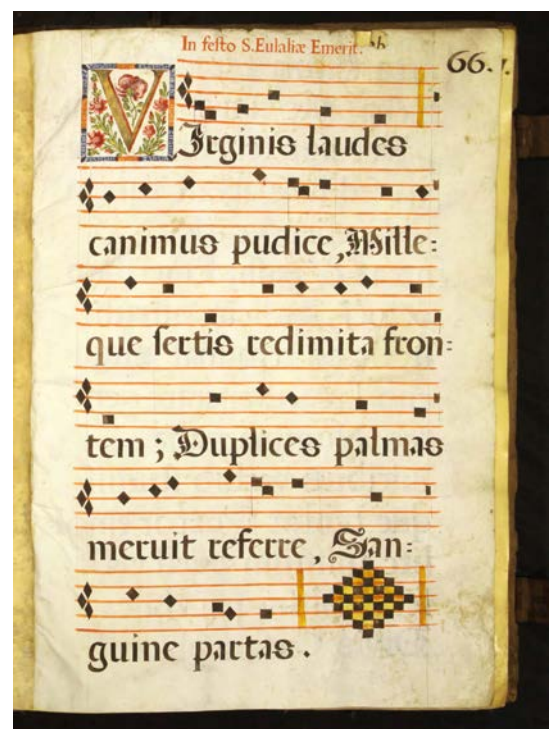 In festo S. Eulaliæ Emerit.
66.
VIrginis laudes
canimus pudice, Mille=
que sertis redimita fron=
tem; Duplices palmas
meruit referre, San=
guine partas.